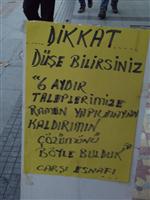 DİKKAT
DÜŞE BİLİRSİNİZ
"6 AYDIR
TALEPLERİMİZE
RAĞMEN YAPILMAYAN
KALDIRIMIN
ÇÖZÜMÜNÜ
BÖYLE BULDUK"
ÇARŞI ESNAFI